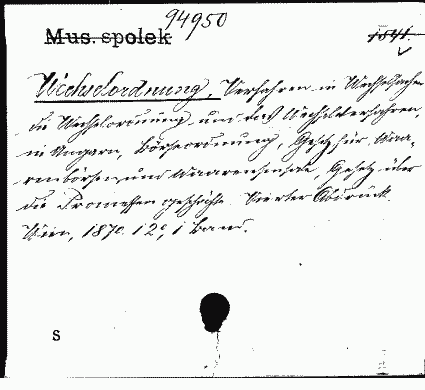 94950
Mus. spolek 1841.
Wechselordnung, Verfahren in Wechselsachen
die Wechselordnung und das Wechselverfahren,
in Ungarn, Börseordnung, Gesetz für Waa-
renbörsen und Waarensensale, Gesetz über
die Promessengeschäfte. Vierter Abdruck.
Wien, 1870. 12°, 1 Band.
S